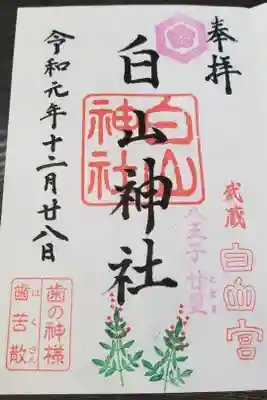 奉拝
武蔵
白山宮
八王子 廿里
とどり
白山神社
白山
神社
令和元年十二月廿八日
歯の神様
歯苦散
はくさん